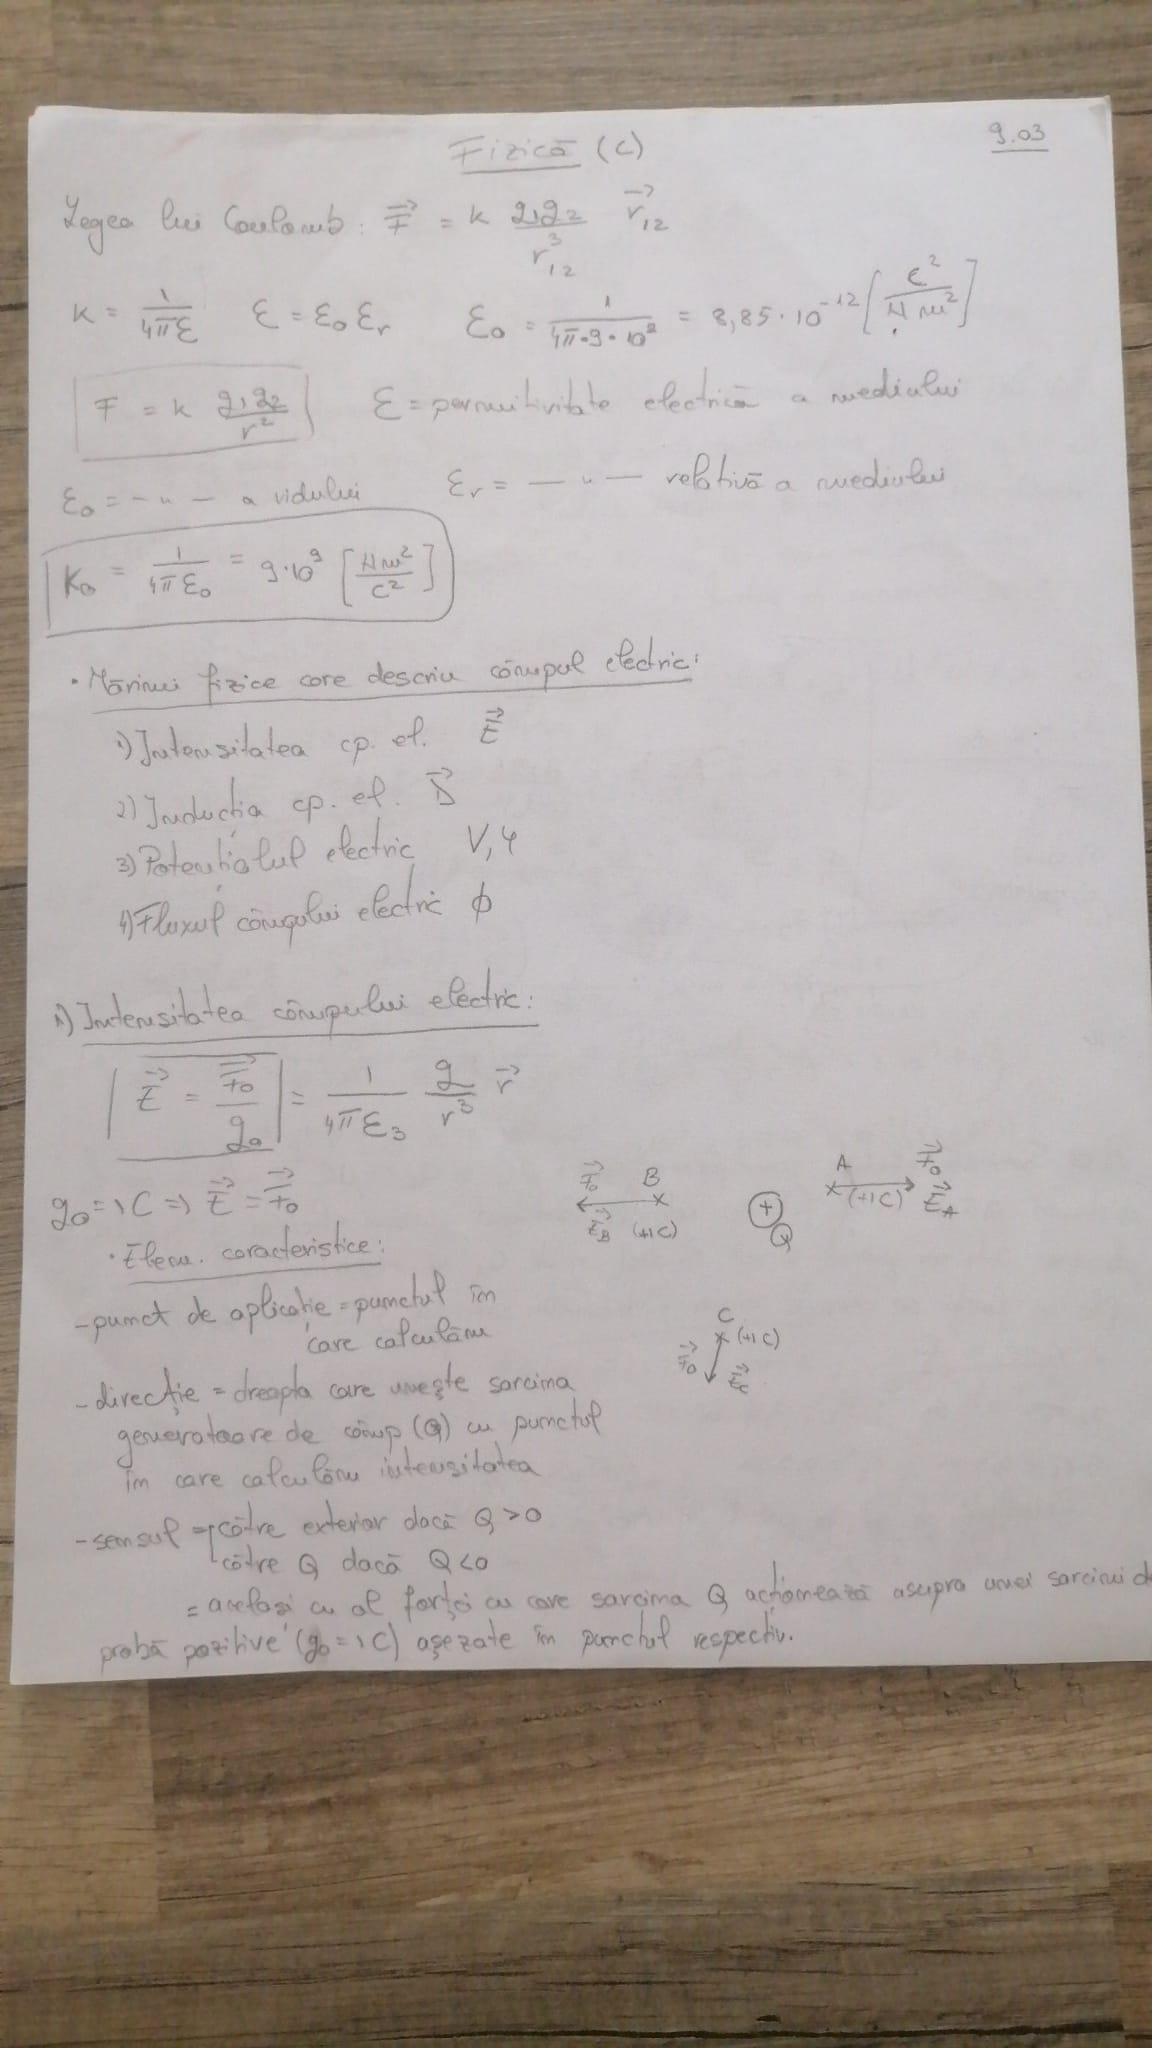 Fizică (C)
9.03
Legea lui Coulomb: F⃗ = k q₁q₂/r₁₂³ r⃗₁₂
k = 1/4πε  ε = ε₀ εᵣ  ε₀ = 1/4π·9·10⁹ = 8,85·10⁻¹² [C²/Nm²]
F = k q₁q₂/r²  ε = permitivitate electrică a mediului
ε₀ = — " — a vidului  εᵣ = — " — relativă a mediului
K₀ = 1/4πε₀ = 9·10⁹ [Nm²/C²]
• Mărimi fizice care descriu câmpul electric:
1) Intensitatea cp. el. E⃗
2) Inducția cp. el. D⃗
3) Potențialul electric V, φ
4) Fluxul câmpului electric ϕ
1) Intensitatea câmpului electric:
E⃗ = F⃗₀/q₀ = 1/4πε₃ q/r³ r⃗
q₀ = 1C ⇒ E⃗ = F⃗₀
F⃗₀ B
E⃗B (+1C)
+
Q
A F⃗₀
(+1C) E⃗A
C
(+1C)
F⃗₀ E⃗C
• Elem. caracteristice:
- punct de aplicație = punctul în
care calculăm
- direcție = dreapta care unește sarcina
generatoare de câmp (Q) cu punctul
în care calculăm intensitatea
- sensul = către exterior dacă Q > 0
către Q dacă Q < 0
= același cu al forței cu care sarcina Q acționează asupra unei sarcini de
probă pozitive (q₀ = 1C) așezate în punctul respectiv.